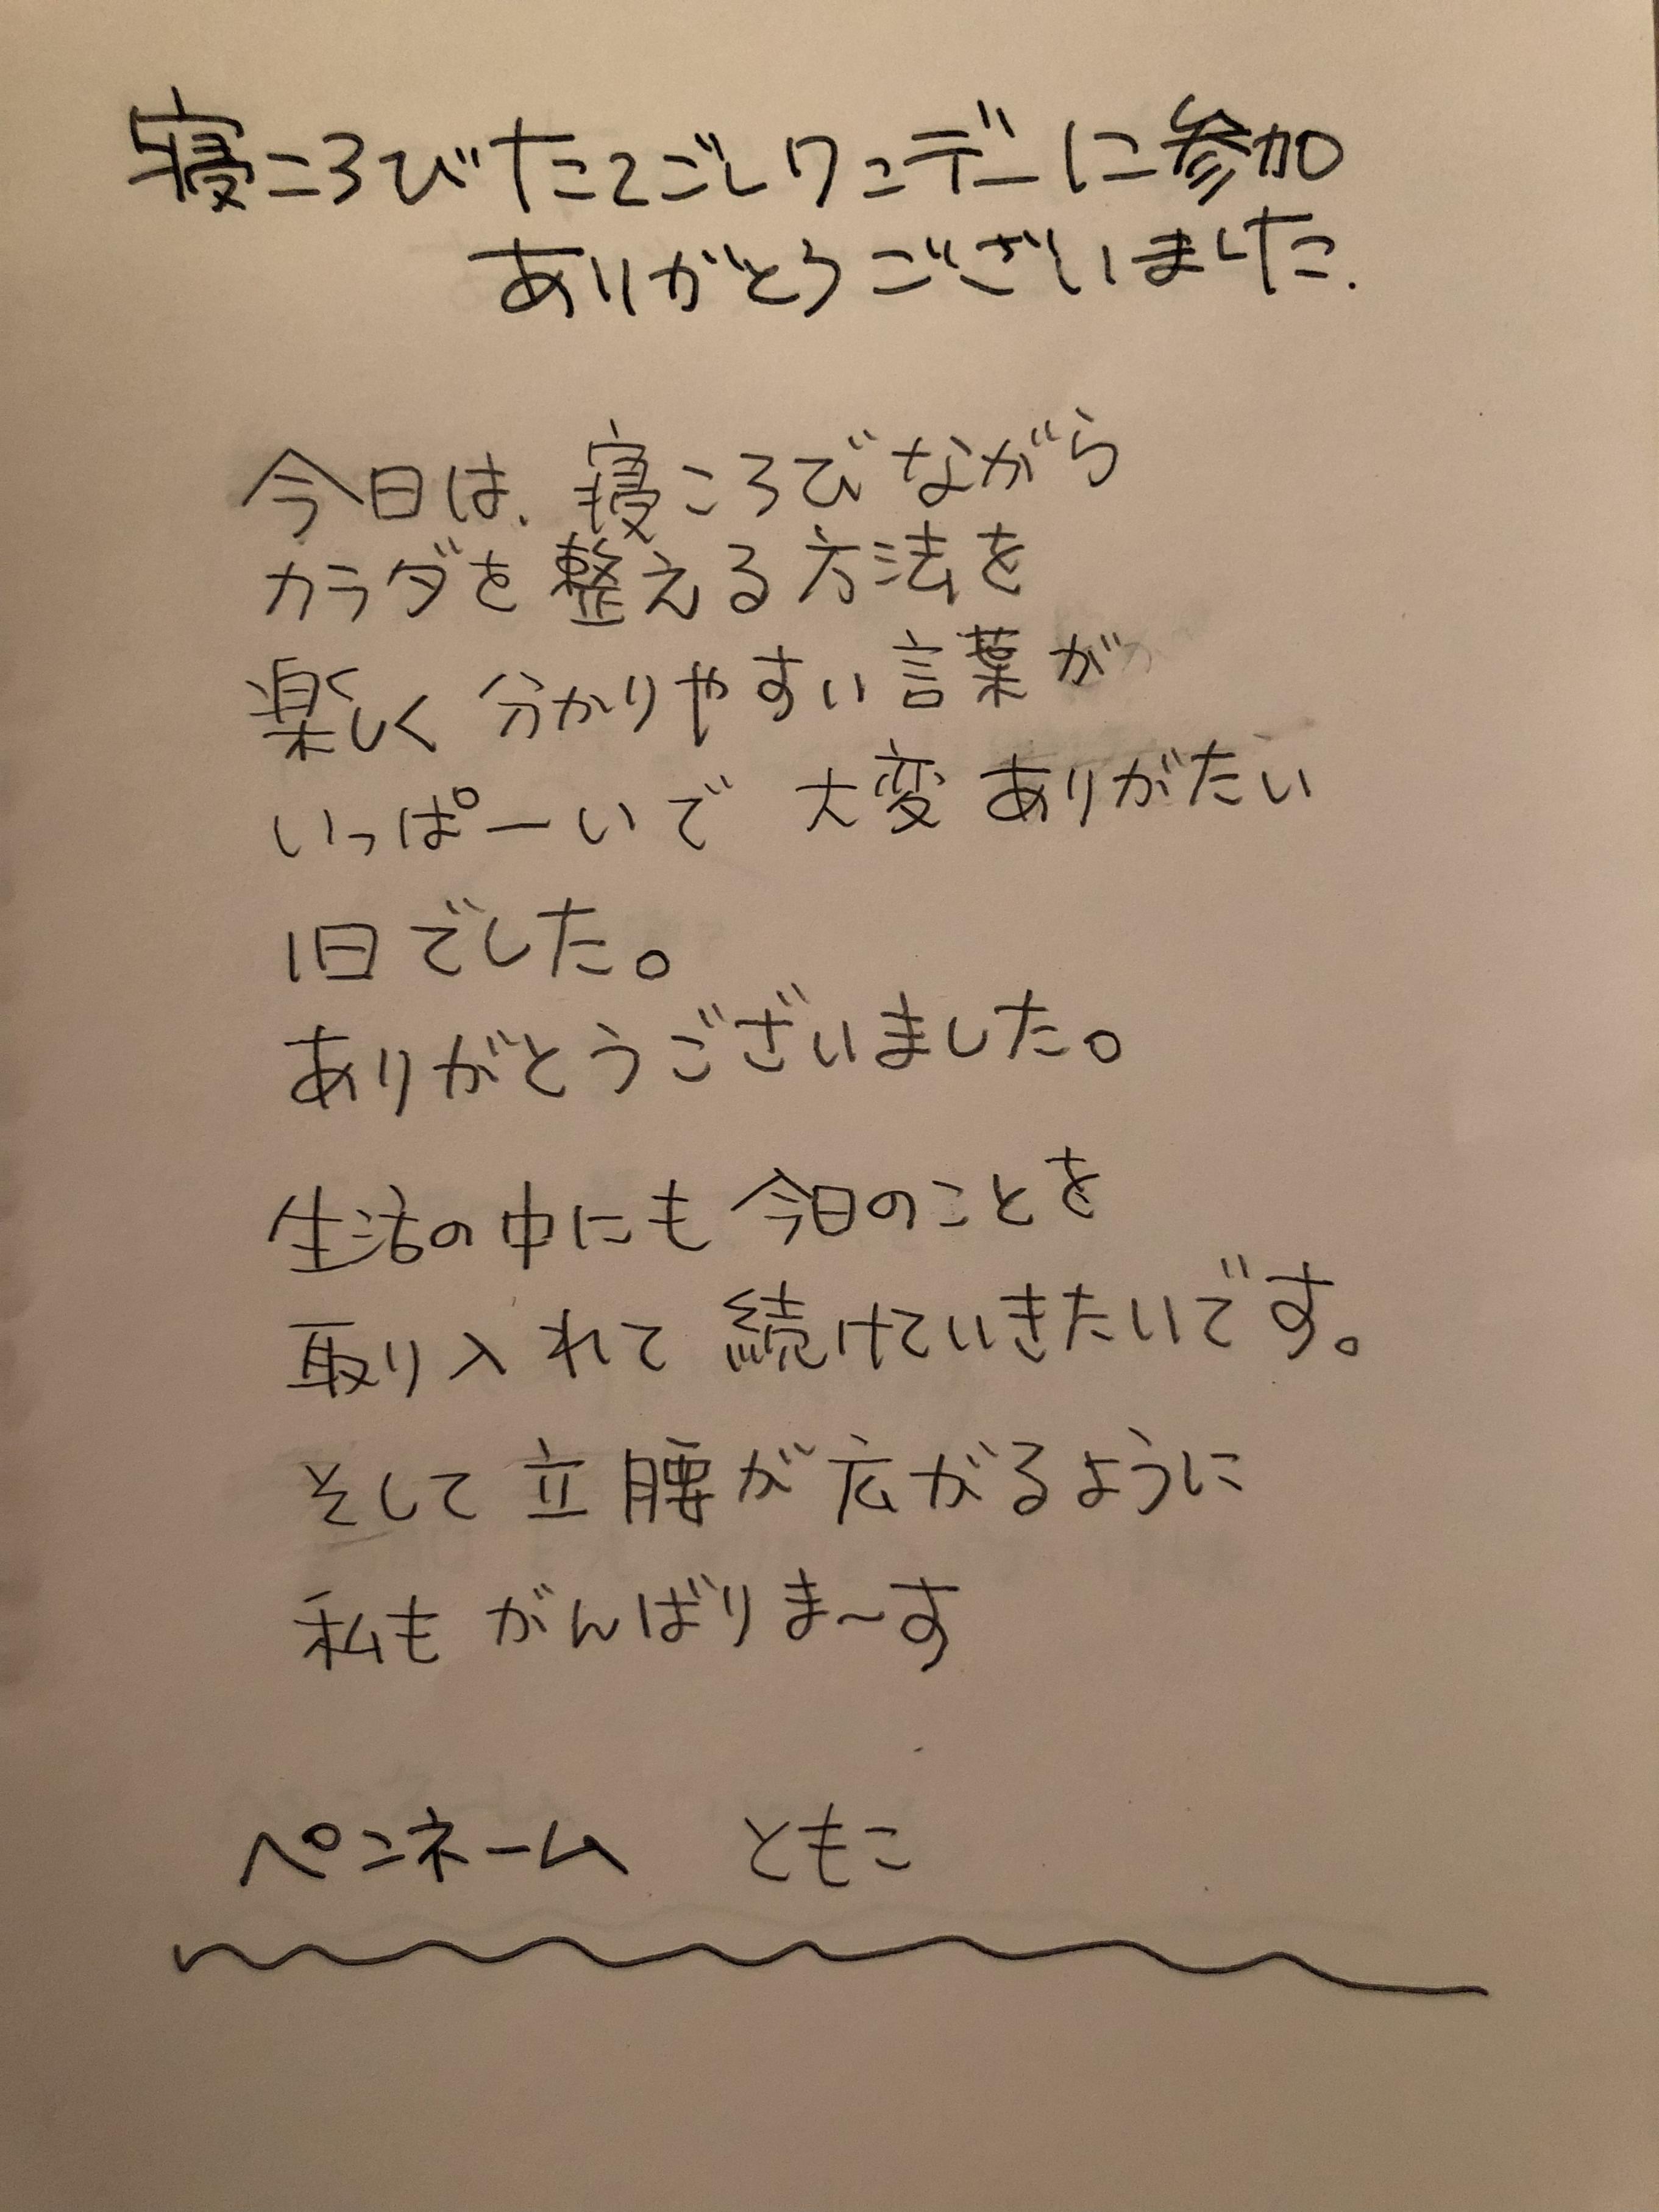 寝ころびたてごしワンデーに参加
ありがとうございました.
今日は、寝ころびながら
カラダを整える方法を
楽しく分かりやすい言葉が
いっぱーいで 大変ありがたい
1日でした。
ありがとうございました。
生活の中にも今日のことを
取り入れて続けていきたいです。
そして立腰が広がるように
私もがんばりま〜す
ペンネーム ともこ